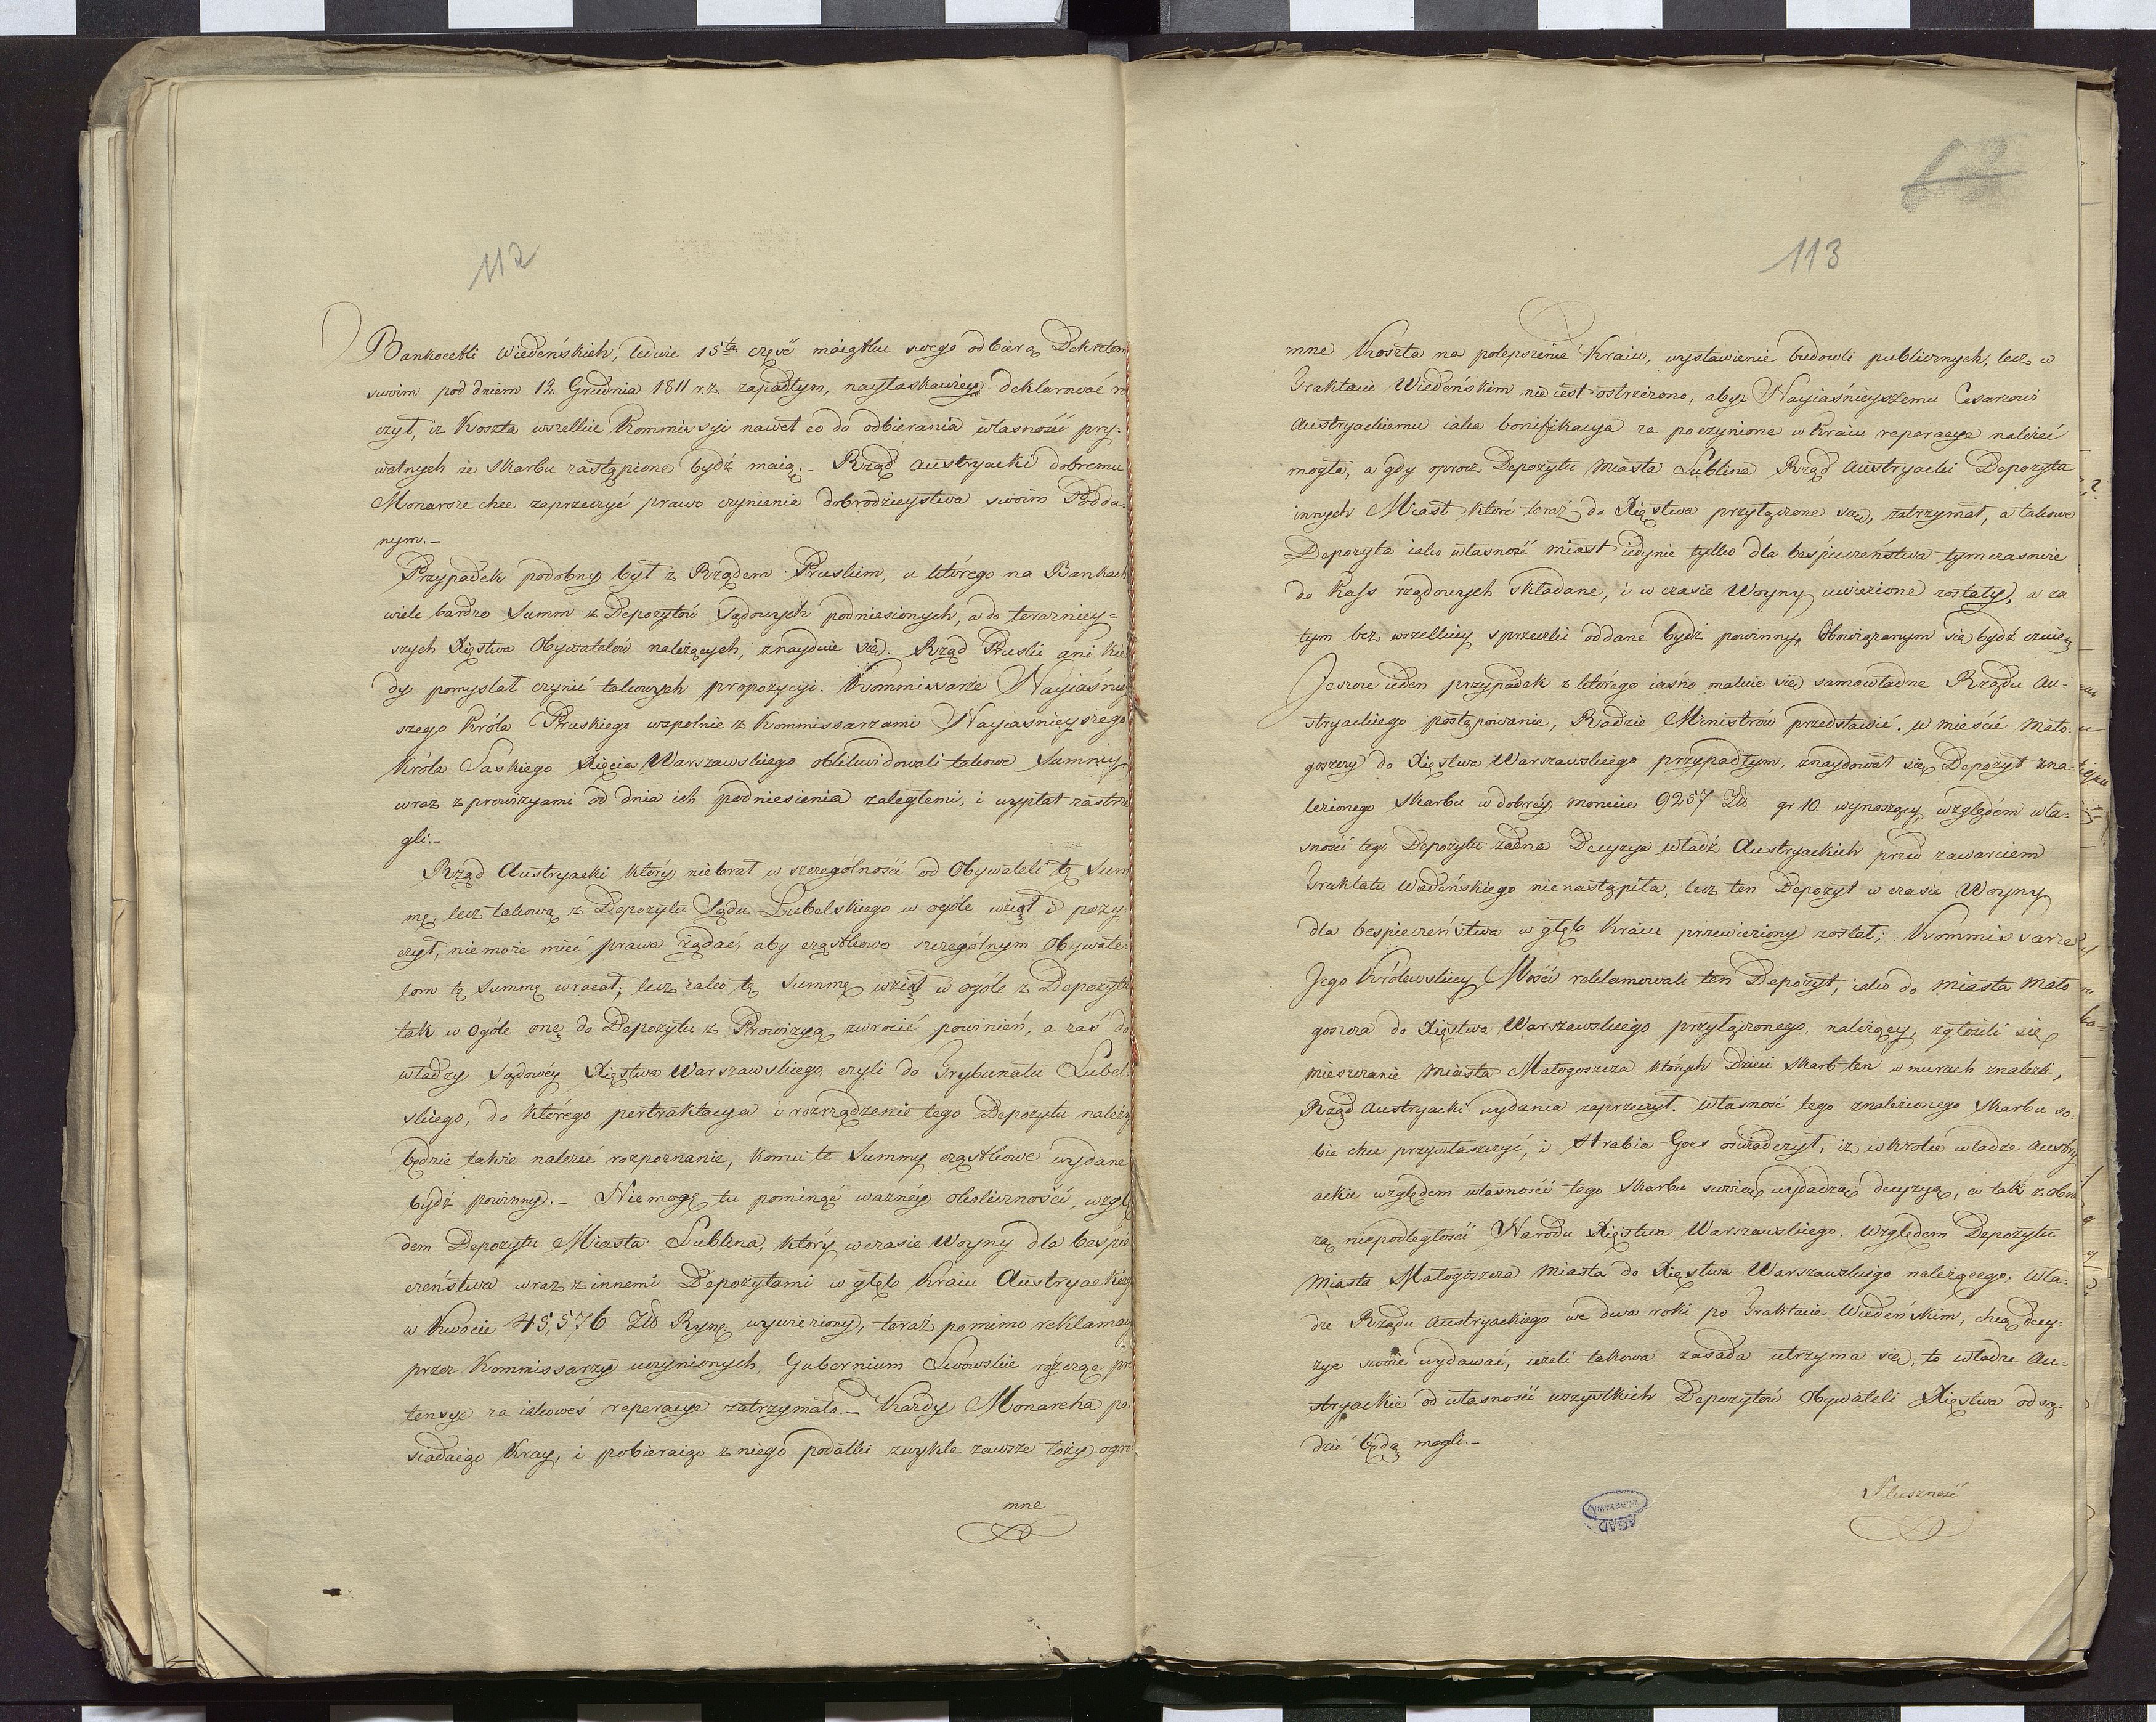 112
Bankocetli Wiedeńskich, ledwie 15ta część maiątku swego odbierą Dekretem
swoim pod dniem 12. Grudnia 1811 r.z. zapadłym, nayłaskawiey deklarować ra
czył, iż Koszta wszelkie Kommissyi nawet co do odbierania własności pry-
watnych ze Skarbu zastąpione bydź maią.- Rząd Austryacki dobremu
Monarsze chce zaprzeczyć prawo czynienia dobrodzieystwa swoim Podda-
nym.-
Przypadek podobny był z Rządem Pruskim, u którego na Bankach
wiele bardzo Summ z Depozytów Sądowych podniesionych, a do teraźniey=
szych Xięstwa Obywatelów należących, znayduie się. Rząd Pruski ani kie
dy pomyslał czynić takowych propozycyi. Kommissarze Nayiaśniey
szego Króla Pruskiego wspolnie z Kommissarzami Nayiasnieyszego
Króla Saskiego Xięcia Warszawskiego oblikwidowali takowe Summy
wraz z prowizyami od dnia ich podniesienia zaległemi, i wypłat zastrze
gli.-
Rząd Austryacki który niebrał w szczególności od Obywateli tę Sum
mę, lecz takową z Depozytu Sądu Lubelskiego w ogóle wziął i poży-
czył, niemoże mieć prawa żądać, aby cząstkowo szczególnym Obywate-
lom tę Summę wracał; lecz iako tę Summę wziął w ogóle z Depozytu
tak w Ogóle onę do Depozytu z Prowizyą zwrocić powinień, a zaś do
władzy Sądowéy Xięstwa Warszawskiego, czyli do Trybunału Lubel-
skiego, do którego pertraktacya i rozrządzenie tego Depozytu należy
będzie także należeć rozpoznanie, komu te Summy cząstkowe wydane
bydź powinny.- Niemogę tu pominąć ważnéy okoliczności, wzglę
dem Depozytu Miasta Lublina, który w czasie Woyny dla bespie
czeństwa wraz z innemi Depozytami w głęb Kraiu Austryackiego
w Kwocie 45,576 Zło Ryń wywieziony, teraz pomimo reklamacyi
przez Kommissarzy uczynionych, Gubernium Lwowskie rózcząc pre
tensye za iakoweś reperacye zatrzymało.- Każdy Monarcha po-
siadaiąc Kray, i pobieraiąc z niego podatki zwykle zawsze łoży ogro
mne
113
mne Koszta na polepszenie Kraiu, wystawienie budowli publicznych, lecz w
Traktacie Wiedeńskim nie iest ostrzeżono, aby Nayiaśnieyszemu Cesarzowi
Austryackiemu iaka bonifikacya za poczynione w Kraiu reperacye należeć
mogła, a gdy oprocz Depozytu Miasta Lublina Rząd Austryacki Depozyta
innych Miast które teraz do Xięstwa przyłączone są, zatrzymał, a takowe
Depozyta iako własność miast iedynie tylko dla bespieczeństwa tymczasowie
do Kass rządowych składane, i w czasie Woyny uwiezione zostały, a za
tym bez wszelkiey sprzeczki oddane bydź powinny, Obowiązanym się bydź czuię
Jeszcze ieden przypadek z którego iaśno maluie się samowładne Rządu Au-
stryackiego postępowanie, Radzie Ministrów przedstawić. W mieście Mało-
goszczy do Xięstwa Warszawskiego przypadłym, znaydował się Depozyt zna-
lezionego Skarbu w dobréy monecie 9257 Zło gr 10. wynoszący, względem wła-
sności tego Depozytu żadna Decyzya władz Austryackich przed zawarciem
Traktatu Wiedeńskiego nienastąpiła, lecz ten Depozyt w czasie Woyny
dla bespieczeństwa w głęb Kraiu przewieziony został; Kommissarze
Jego Królewskiey Mości reklamowali ten Depozyt, iako do miasta Mało
goszcza do Xięstwa Warszawskiego przyłączonego, należący, zgłosili się
mieszczanie miasta Małogoszcza których Dzieci Skarb ten w murach znalezli,
Rząd Austryacki wydania zaprzeczył. Własność tego znalezionego Skarbu so-
bie chce przywłaszczyć, i Hrabia Goes oswiadczył, iż wkrotce władze Austry
ackie względem własności tego Skarbu swoię wydadzą decyzyą, a tak z obra
zą niepodległości Narodu Xięstwa Warszawskiego. Względem Depozytu
miasta Małogoszcza miasta do Xięstwa Warszawskiego należącego, Wła-
dze Rządu Austryackiego we dwa roki po Traktacie Wiedeńskim, chcą decy-
zye swoie wydawać, ieżeli takowa zasada utrzyma się, to władze Au-
stryackie od własności wszystkich Depozytów Obywateli Xięstwa odsą-
dzić będą mogli.-
Słuszność
AGAD
WARSZAWA